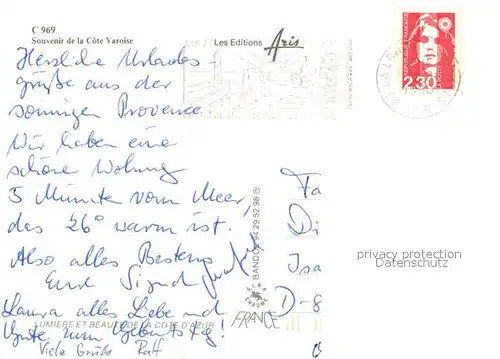 C 969
Souvenir de la Côte Varoise
Les Editions Aris
RÉPUBLIQUE FRANÇAISE
2,30
LA POSTE
Herzliche Urlaubs-
grüße aus der
sonnigen Provence.
Wir haben eine
schöne Wohnung
5 Minuten vom Meer,
das 26° warm ist.
Also alles Beste
Eure
Laura alles Liebe und
Gute zum Geburtstag!
Viele Grüße Ralf
LUMIERE ET BEAUTE DE LA COTE D'AZUR
BANDOL 94 29 52 98 ®
FRANCE
Fa
Di
Isa
D-8
privacy protection
Datenschutz